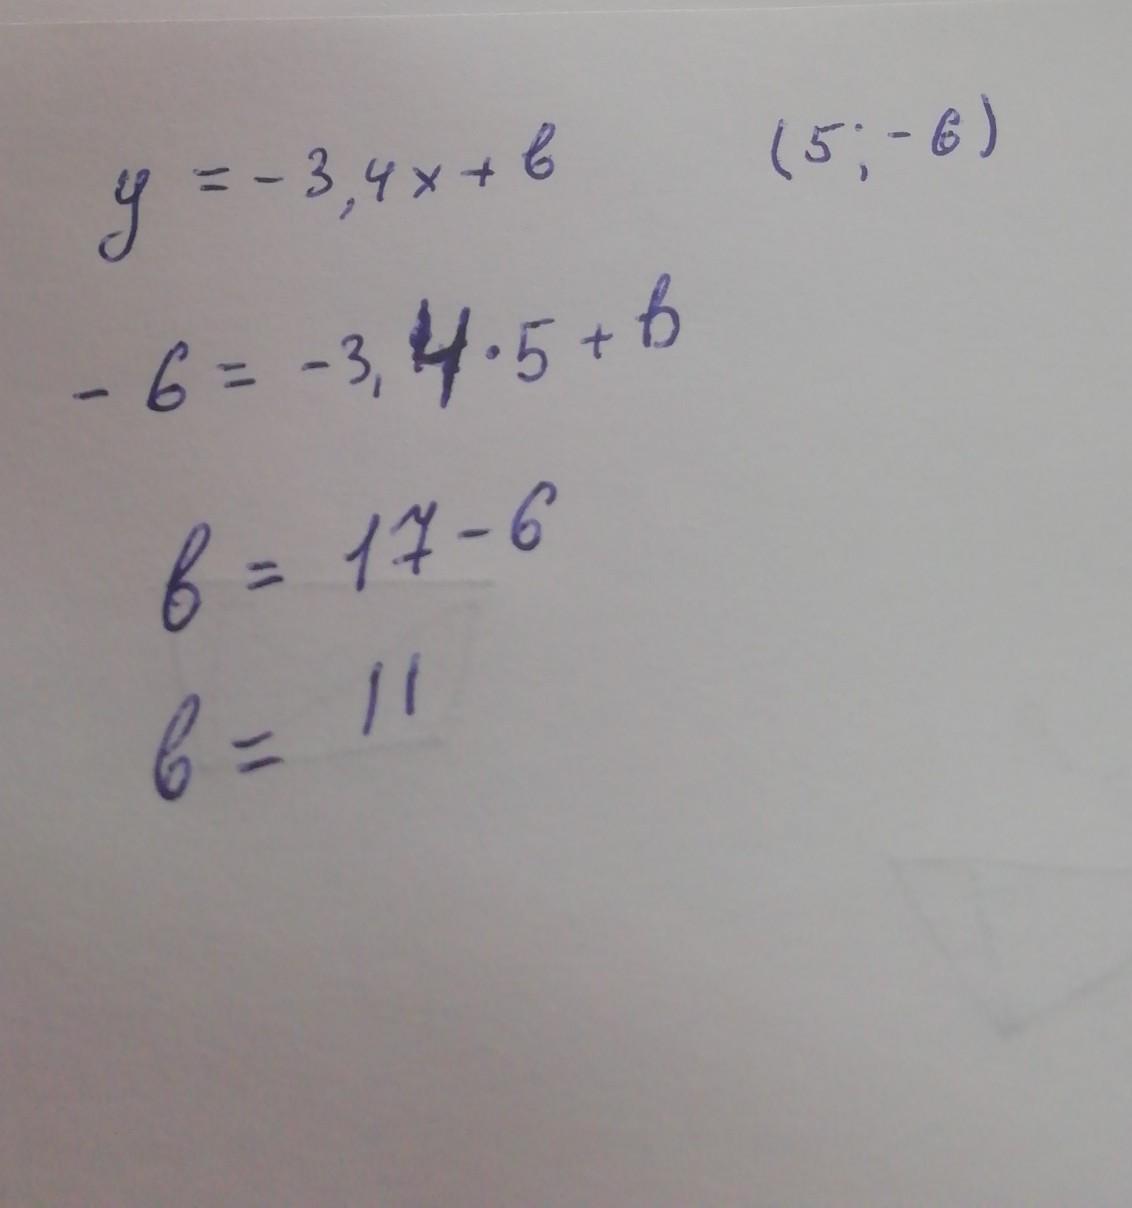 y = -3,4x + b (5; -6)
-6 = -3,4·5 + b
b = 17 - 6
b = 11